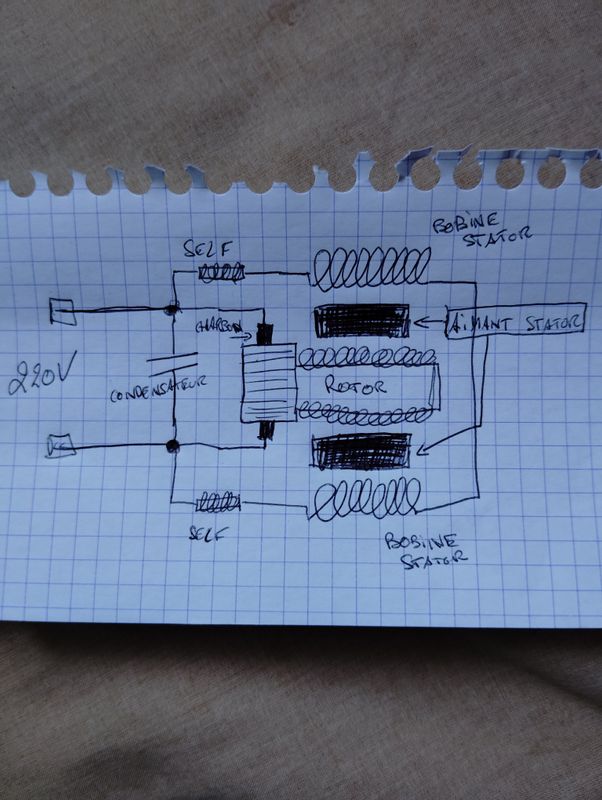 BOBINE
STATOR
SELF
CHARBON
AIMANT STATOR
220V
CONDENSATEUR
ROTOR
SELF
BOBIINE
STATOR